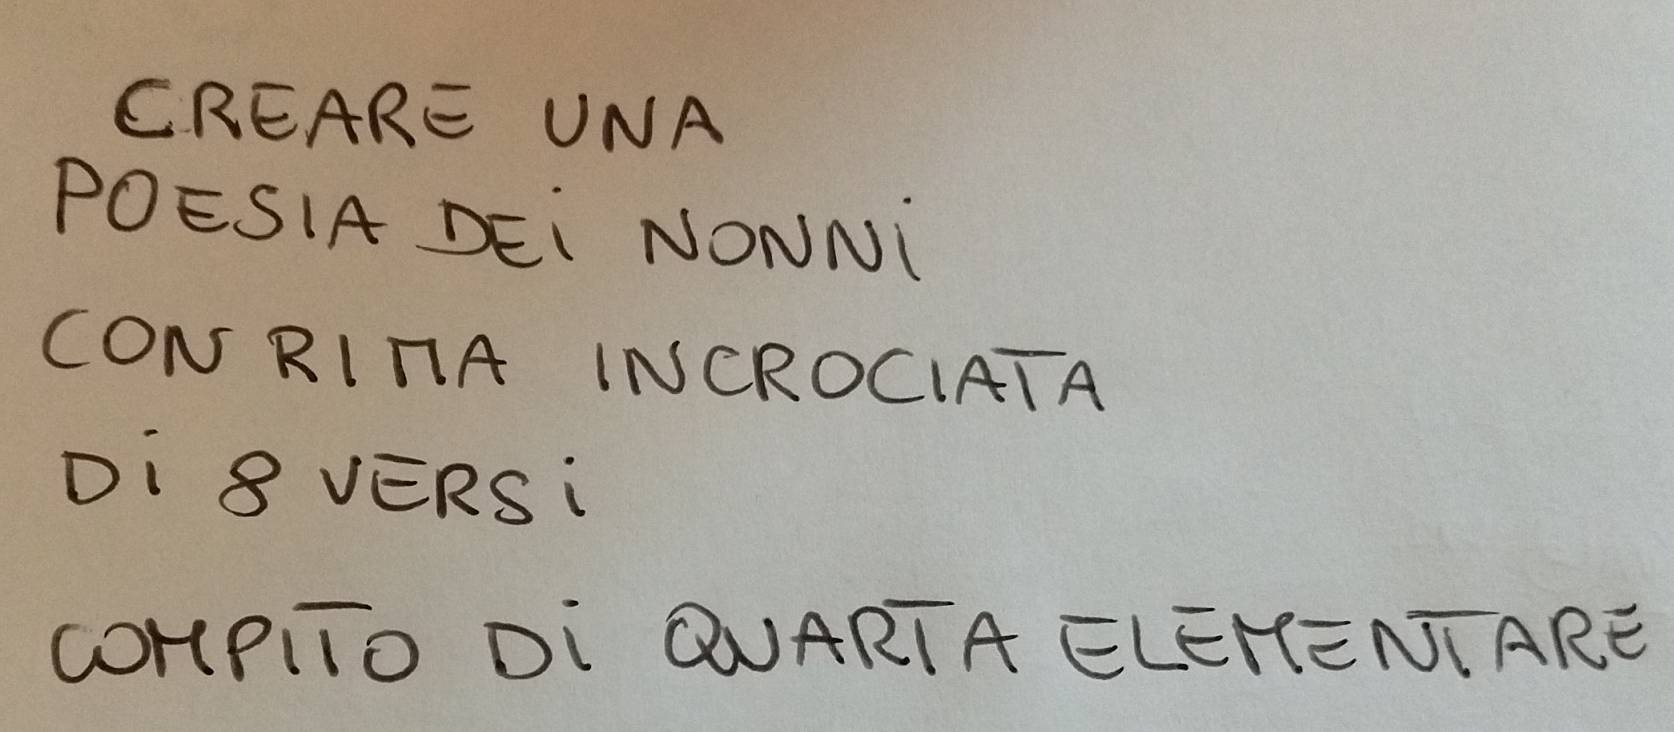 CREARE UNA
POESIA DEI NONNI
CON RIMA INCROCIATA
DI 8 VERSI
COMPITO DI QUARTA ELEMENTARE